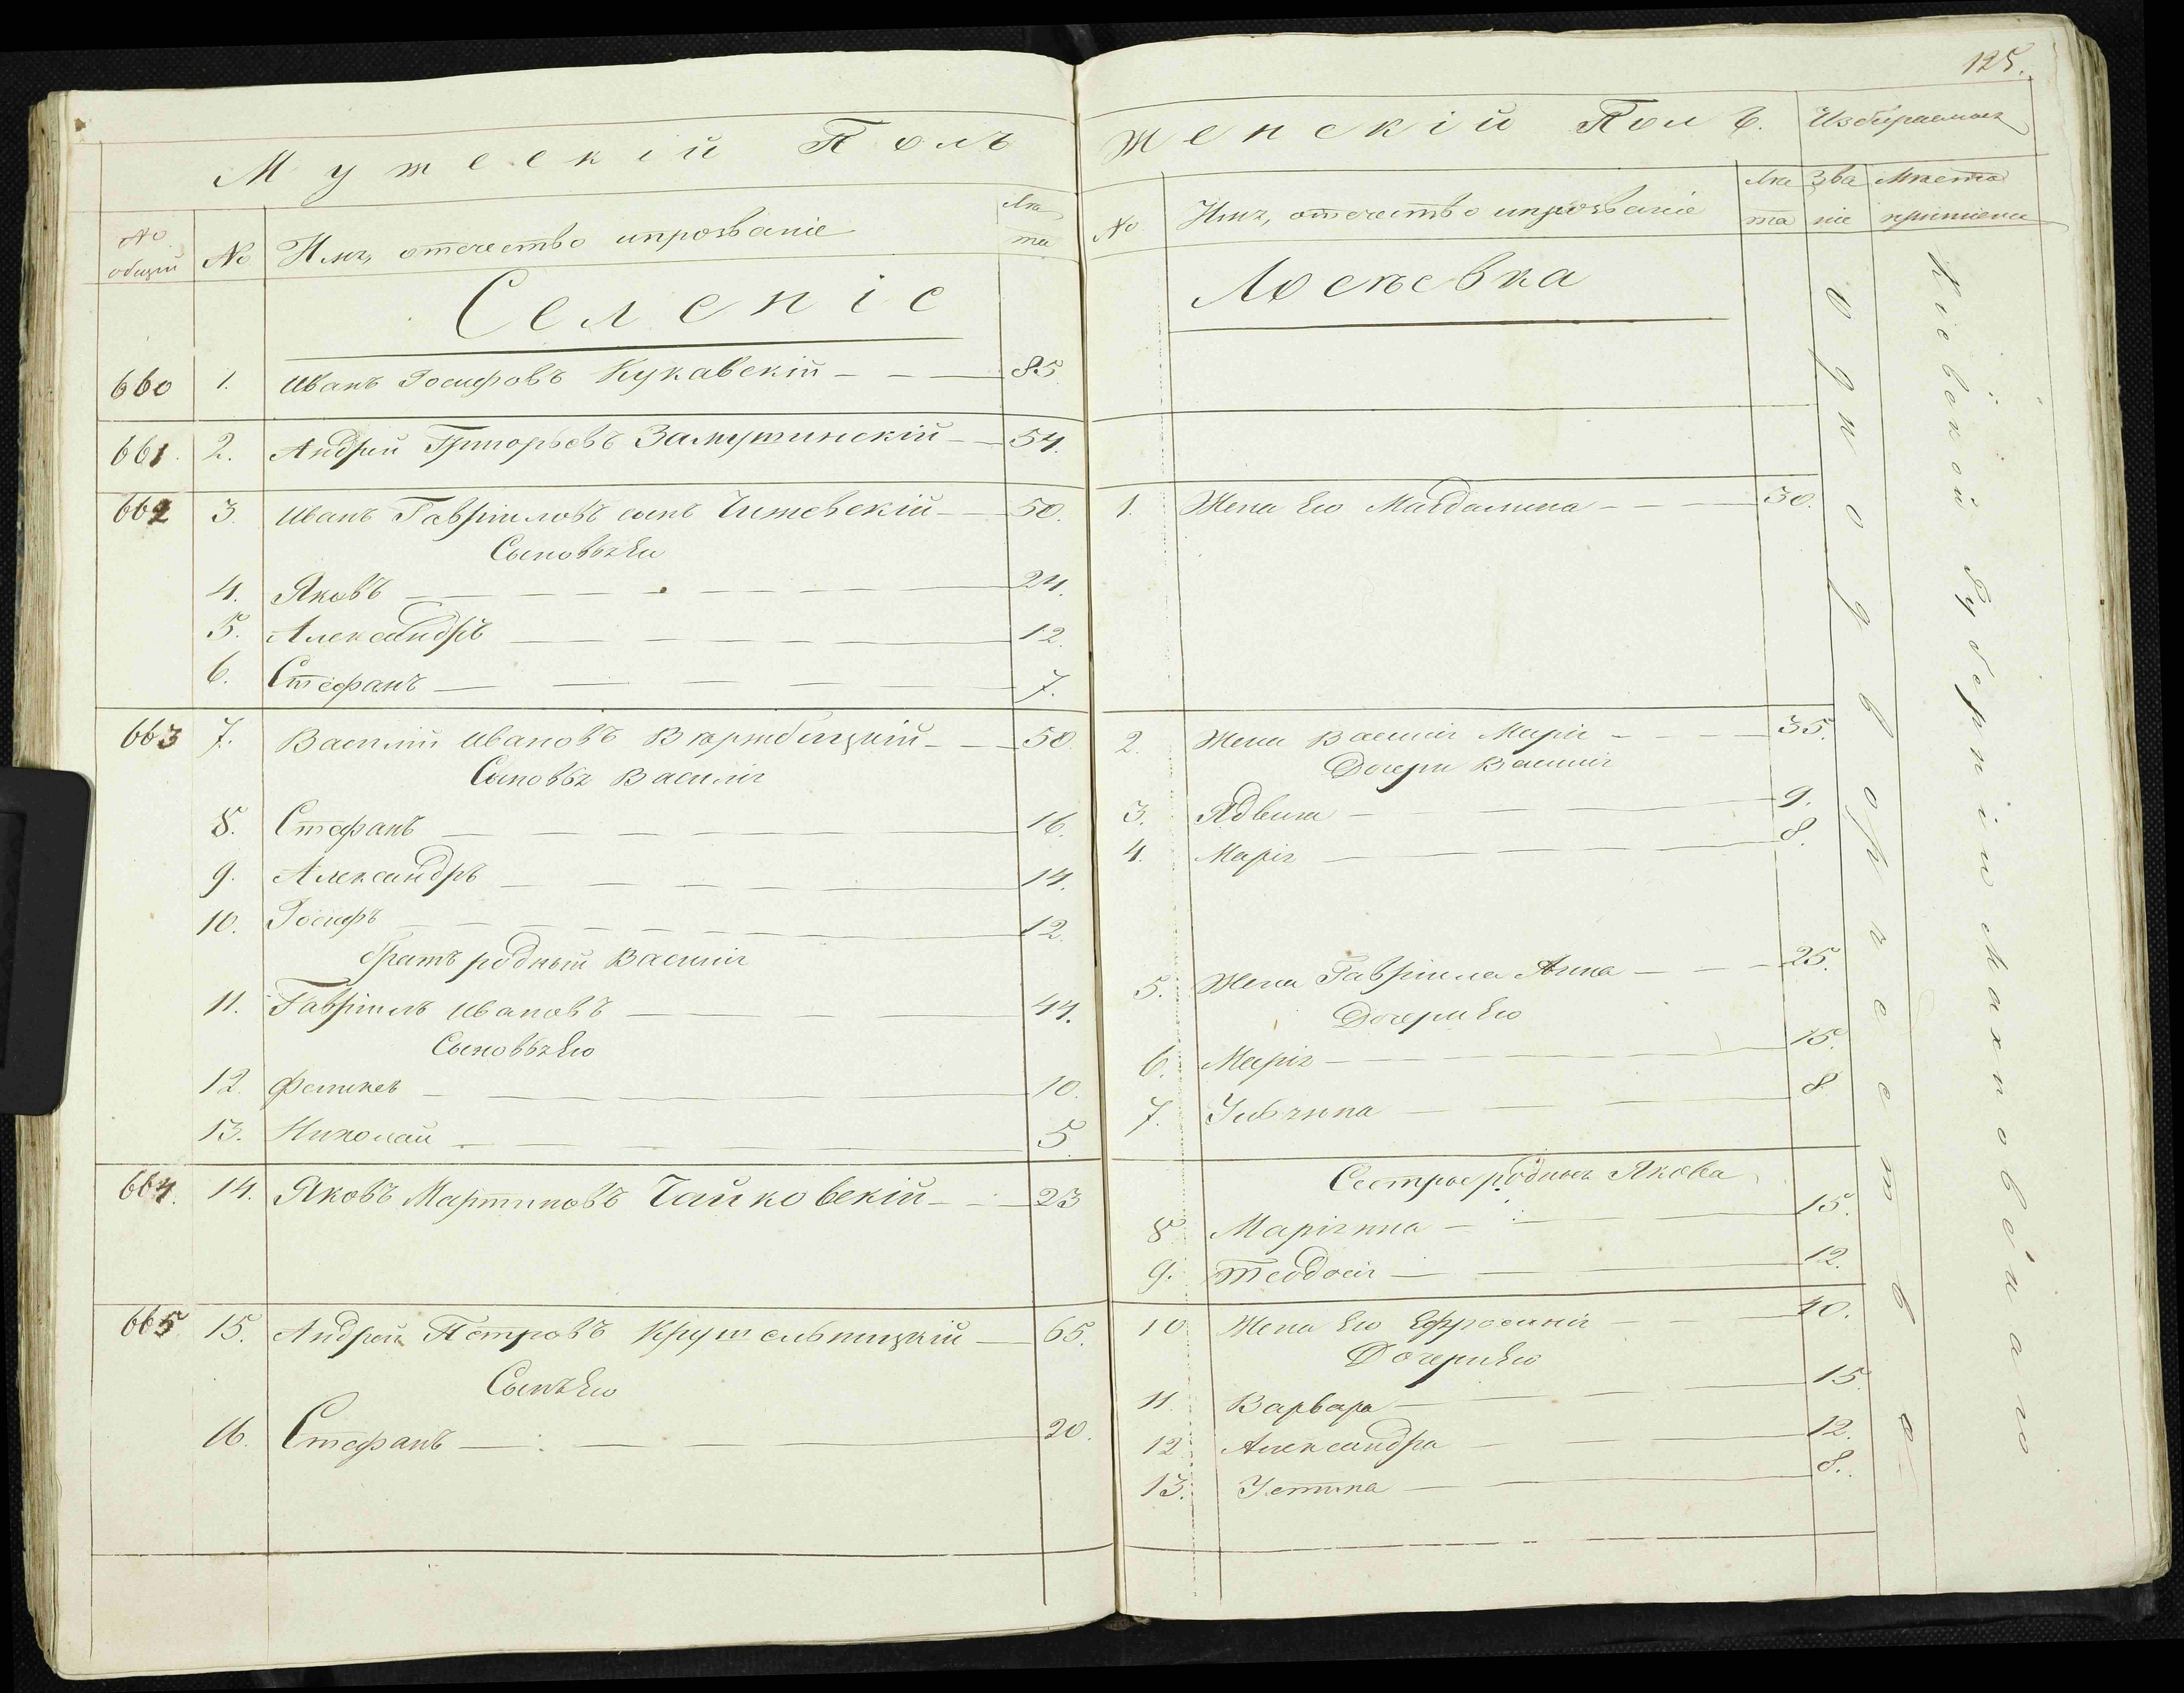 125.
Мужескій Полъ
№ общій
№
Имя, отчество и прозваніе
Лѣта
Селеніе
660 1. Иванъ Іосифовъ Кукавскій 85.
661. 2. Андрей Григорьевъ Залмушинскій 54.
662 3. Иванъ Гавріиловъ сынъ Чижевскій 50.
Сыновья Ею
4. Яковъ 24.
5. Александръ 12.
6. Стефанъ 7.
663 7. Василій Ивановъ Вержбицкій 50.
Сыновья Василія
8. Стефанъ 16.
9. Александръ 14.
10. Іосифъ 12.
братъ родный Василія
11. Гавріилъ Ивановъ 44.
Сыновья Ею
12. Феликсъ 10.
13. Николай 5.
664. 14. Яковъ Мартиновъ Чайковскій 23
665 15. Андрей Петровъ Крушельницкій 65.
Сынъ Ею
16. Стефанъ 20.
Женскій Полъ.
Избираемыя
№
Имя, отчество и прозваніе
Лѣта
Званіе
Мѣста
Лосѣевка
1. Жена Ею Магдалина 30.
2. Жена Василія Марія 35.
Дочери Василія
3. Ядвига 9.
4. Марія 8.
5. Жена Гавріила Анна 25.
Дочери Ею
6. Марія 15.
7. Уліянна 8
Сестры родныя Якова
8 Маріянна 15.
9. Теодосія 12.
10 Жена Ею Ефросинія 40.
Дочери Ею
11. Варвара 15.
12 Александра 12.
13. Устина 8.
Однодворчество
Кіевской Губерніи Махновскаго